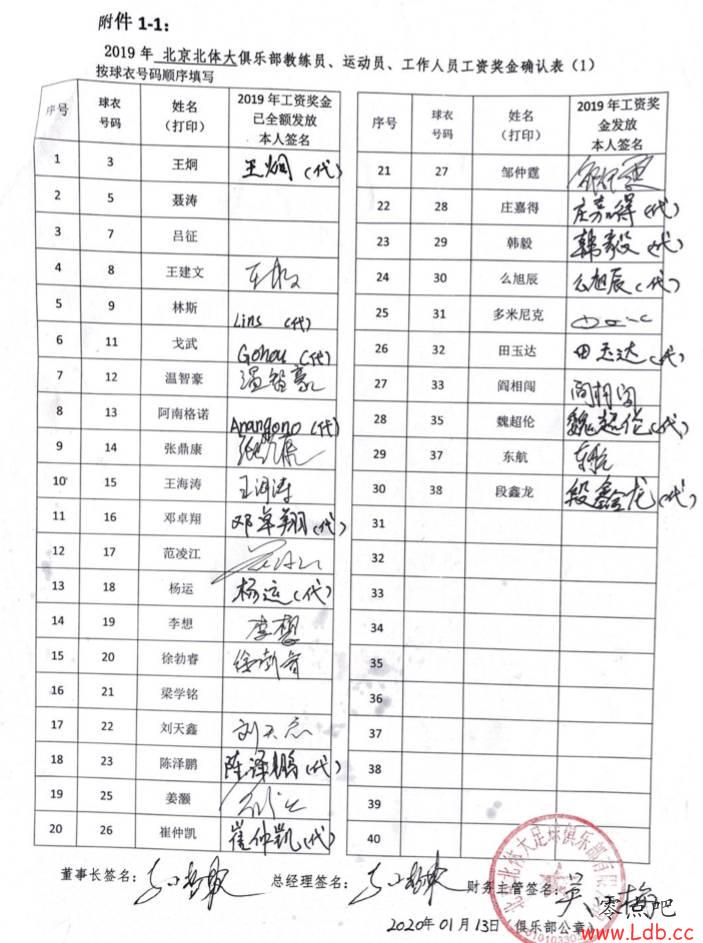 附件 1-1：
2019 年 北京北体大俱乐部教练员、运动员、工作人员工资奖金确认表（1）
按球衣号码顺序填写
序号 球衣号码 姓名（打印） 2019 年工资奖金已全额发放本人签名
1 3 王炯 王炯（代）
2 5 聂涛
3 7 吕征
4 8 王建文
5 9 林斯 Lins （代）
6 11 戈武 Gohou （代）
7 12 温智豪 温智豪
8 13 阿南格诺 Anangono （代）
9 14 张鼎康
10 15 王海涛 王海涛
11 16 邓卓翔 邓卓翔（代）
12 17 范凌江
13 18 杨运 杨运（代）
14 19 李想 李想
15 20 徐勃睿 徐勃睿
16 21 梁学铭
17 22 刘天鑫
18 23 陈泽鹏 陈泽鹏（代）
19 25 姜灏
20 26 崔仲凯 崔仲凯（代）
序号 球衣号码 姓名（打印） 2019 年工资奖金发放本人签名
21 27 邹仲霆
22 28 庄嘉得 庄嘉得（代）
23 29 韩毅 韩毅（代）
24 30 么旭辰 么旭辰（代）
25 31 多米尼克
26 32 田玉达 田玉达（代）
27 33 阎相闯 阎相闯
28 35 魏超伦 魏超伦（代）
29 37 东航 东航
30 38 段鑫龙 段鑫龙（代）
31
32
33
34
35
36
37
38
39
40
董事长签名： 总经理签名： 财务主管签名：
2020年01月13日（俱乐部公章）
北京北体大足球俱乐部有限
零点吧
www.Ldb.cc